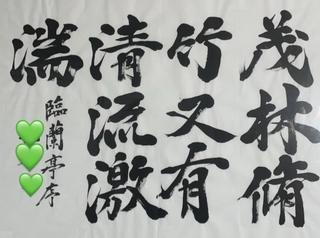 茂林脩
竹又有
清流激
湍
臨蘭亭序